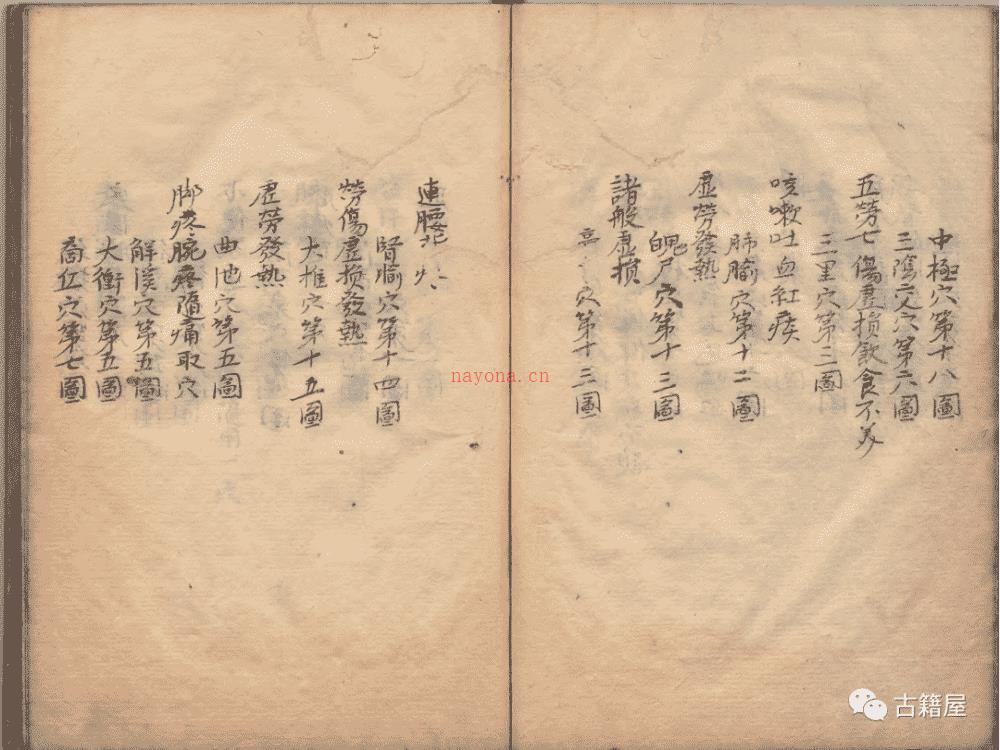 中極穴第十八圖
三陰交穴第六圖
五劳七傷虛損飲食不美
三里穴第三圖
咳嗽吐血紅痰
肺腧穴第十二圖
虛劳發熱
魄户穴第十三圖
諸般虛损
穴第十三圖
連腰
腎腧穴第十四圖
勞傷虛损發熱
大椎穴第十五圖
虛劳發熱
曲池穴第五圖
脚疼腕疼隨痛取穴
解溪穴第五圖
大衝穴第五圖
穴第七圖
nayona.cn
古籍屋